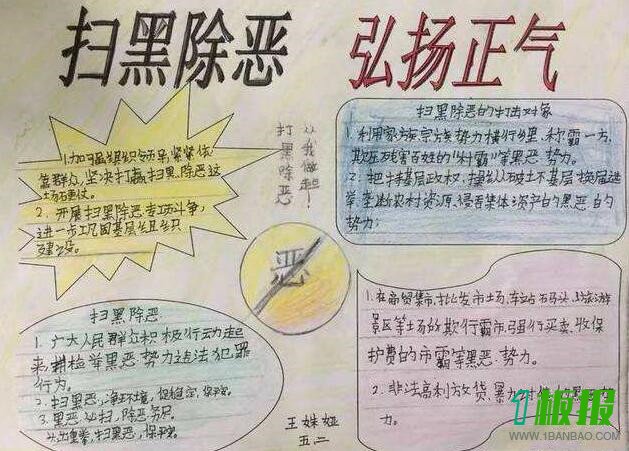 扫黑除恶 弘扬正气
1.加强组织领导,紧紧依
靠群众,坚决打赢扫黑除恶这
场硬仗。
2.开展扫黑除恶专项斗争,
进一步巩固基层党组织
建设。
打黑除恶
从我做起!
恶
扫黑除恶的打击对象
1.利用家族宗族势力横行乡里,称霸一方,
欺压残害百姓的“村霸”等黑恶势力。
2.把持基层政权,操纵破坏基层换届选
举,垄断农村资源,侵吞集体资产的黑恶的
势力;
扫黑除恶
1.广大人民群众积极行动起
来,检举黑恶势力违法犯罪
行为。
2.扫黑恶,净环境,促稳定,保平安。
3.黑恶必扫,除恶务尽。
扫黑恶,保平安。
1.在商贸集市,批发市场,车站码头,旅游
景区等场的欺行霸市,强行买卖,收保
护费的市霸等黑恶势力。
2.非法高利放贷,暴力讨
力。
王姝娅
五二
1板报
WWW.1BANBAO.COM